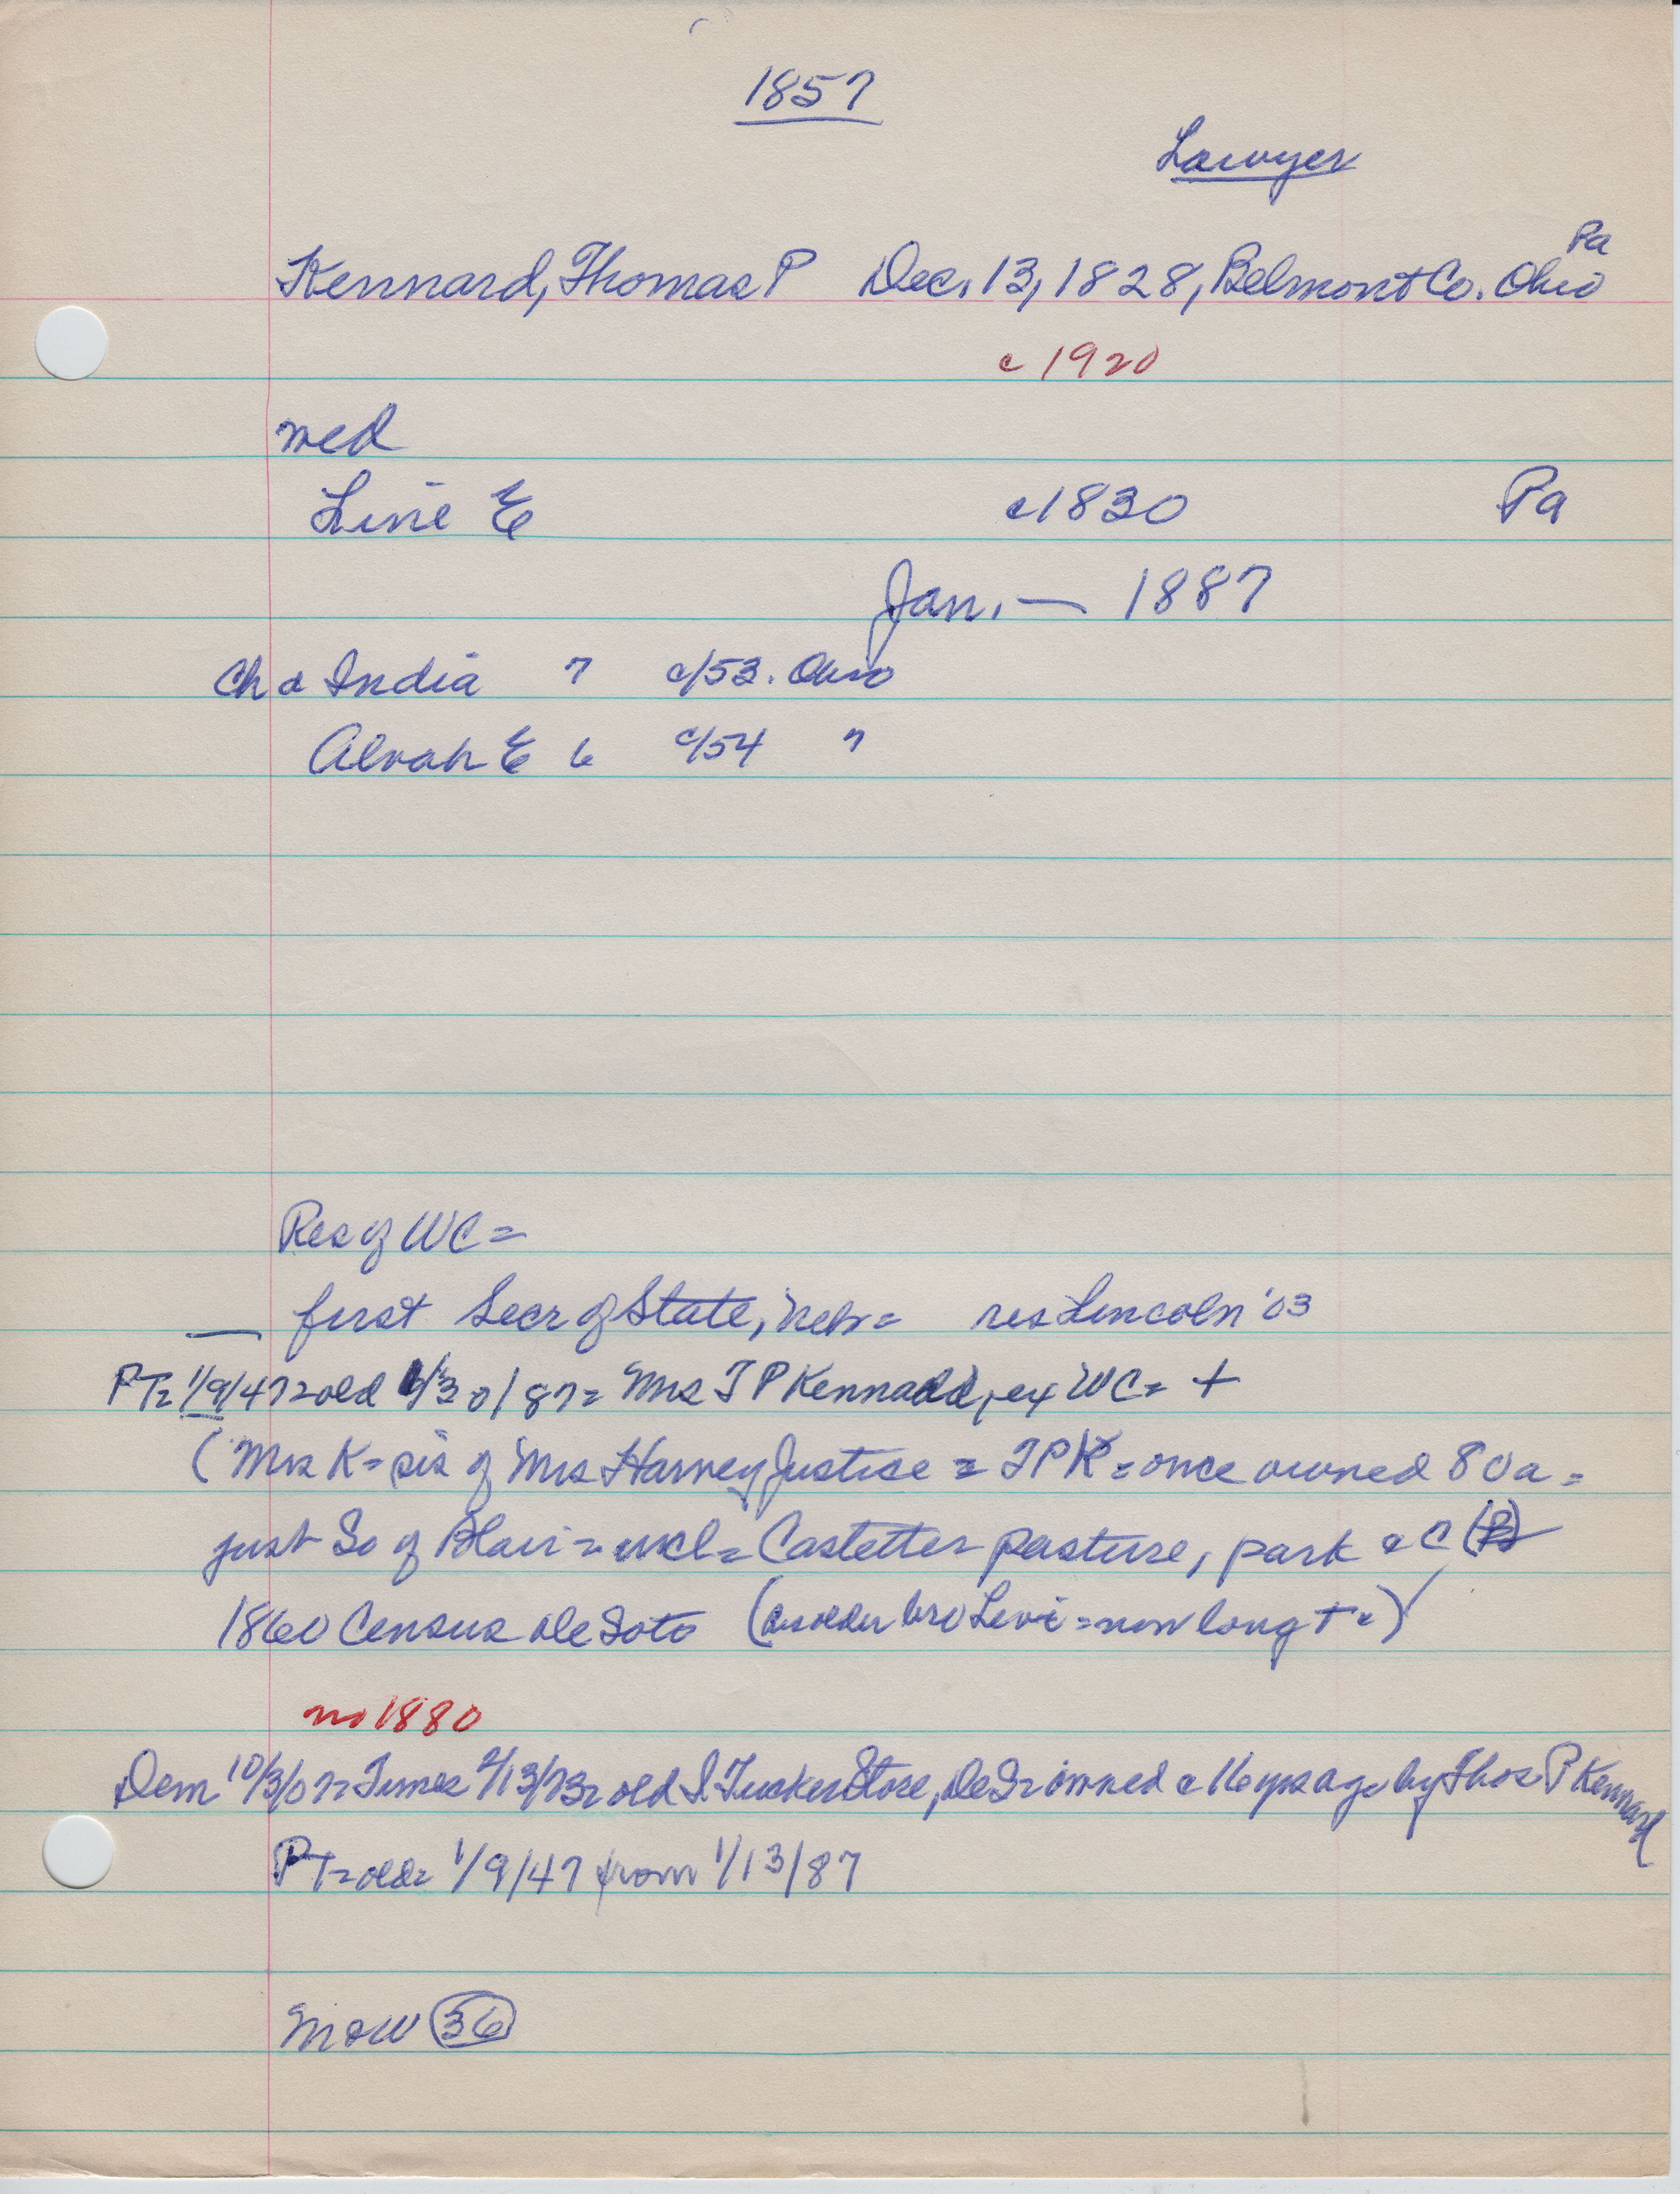 1857
Lawyer
Pa
Kennard, Thomas P Dec. 13, 1828, Belmont Co. Ohio
c 1920
med
Line E c1830 Pa
Jan. — 1887
Ch a India 7 c/53. Ohio
Alvah E 6 c/54 "
Res of WC =
first Secr of State, Nebr = res Lincoln '03
PT= 1/9/47= old 1/30/87= Mrs T P Kennard, ex WC= +
(Mrs K= sis of Mrs Harvey Justice = TPK= once owned 80a =
just So of Blair = incl = Castetter pasture, park & C
1860 Census De Soto (as older bro Levi = now long + =)
no 1880
Dem 10/3/07= Times 2/13/73= old I. Tucker Store, DeS= owned c 16 yrs ago by Thos P Kennard
PT= old= 1/9/47 from 1/13/87
MOW 36